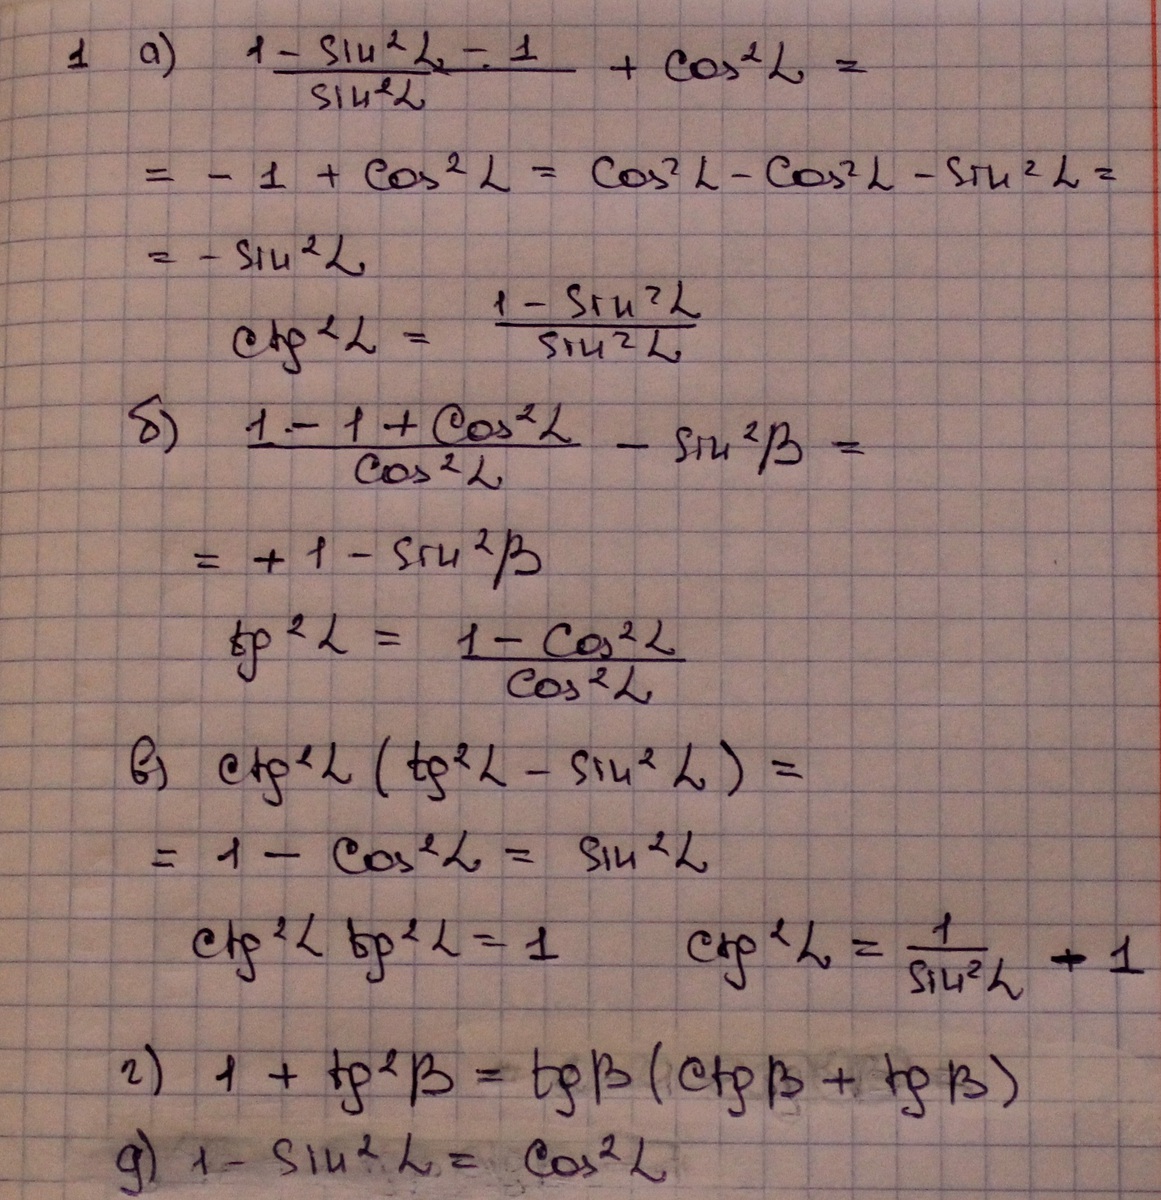 1 а) (1 - sin²α - 1)/(sin²α) + cos²α =
= - 1 + cos²α = cos²α - cos²α - sin²α =
= - sin²α
ctg²α = (1 - sin²α)/(sin²α)
б) (1 - 1 + cos²α)/(cos²α) - sin²β =
= + 1 - sin²β
tg²α = (1 - cos²α)/(cos²α)
в) ctg²α (tg²α - sin²α) =
= 1 - cos²α = sin²α
ctg²α tg²α = 1 ctg²α = 1/(sin²α) - 1
г) 1 + tg²β = tgβ (ctgβ + tgβ)
д) 1 - sin²α = cos²α